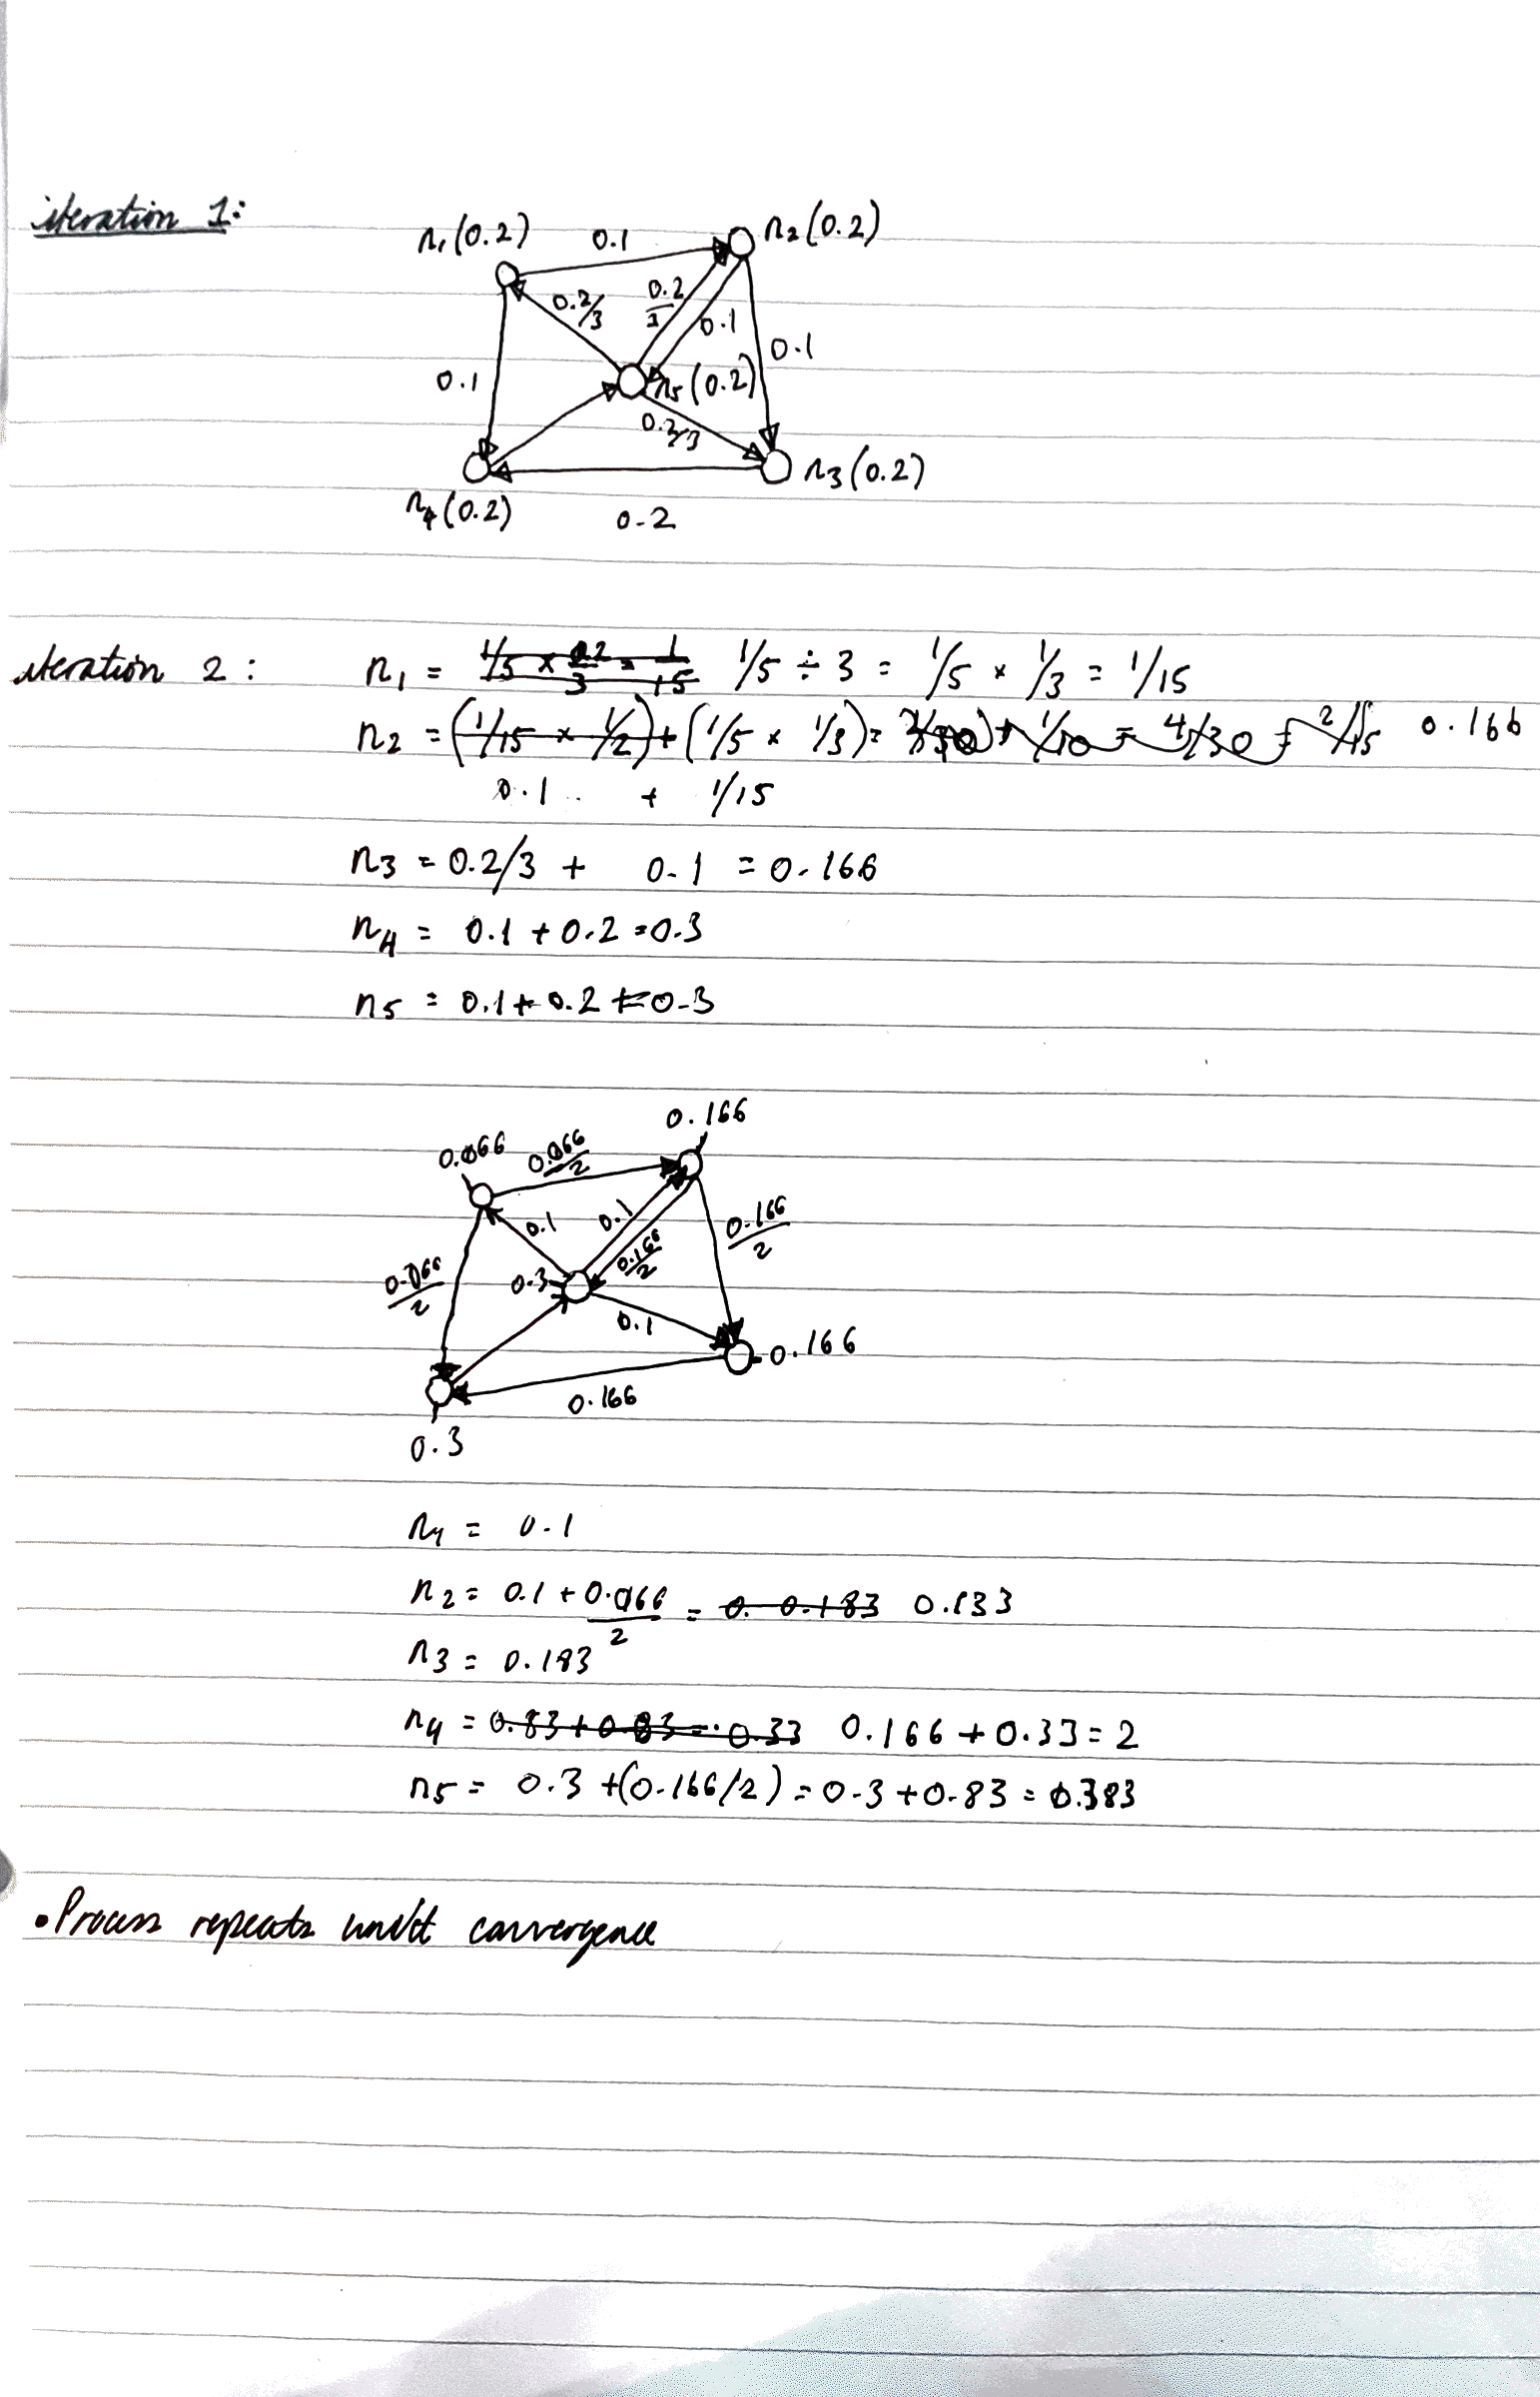 iteration 1:
n₁(0.2) 0.1 n₂(0.2)
0.2/3 0.2/3 0.1 0.1
0.1 n₅(0.2)
0.2/3
n₃(0.2)
n₄(0.2) 0.2
iteration 2: n₁ = 1/5 × 0.2/3 = 1/15 1/5 ÷ 3 = 1/5 × 1/3 = 1/15
n₂ = (1/15 × 1/2) + (1/5 × 1/3) = + 1/10 = 4/30 = 2/15 0.166
0.1 + 1/15
n₃ = 0.2/3 + 0.1 = 0.166
n₄ = 0.1 + 0.2 = 0.3
n₅ = 0.1 + 0.2 = 0.3
0.166
0.066 0.066/2
0.1 0.1 0.166/2 0.166/2
0.066/2 0.3
0.1
0.166
0.166
0.3
n₁ = 0.1
n₂ = 0.1 + 0.066/2 = 0. 0.183 0.133
n₃ = 0.183
n₄ = 0.83 + 0.83 = 0.33 0.166 + 0.33 = 2
n₅ = 0.3 + (0.166/2) = 0.3 + 0.83 = 0.383
• Process repeats until convergence